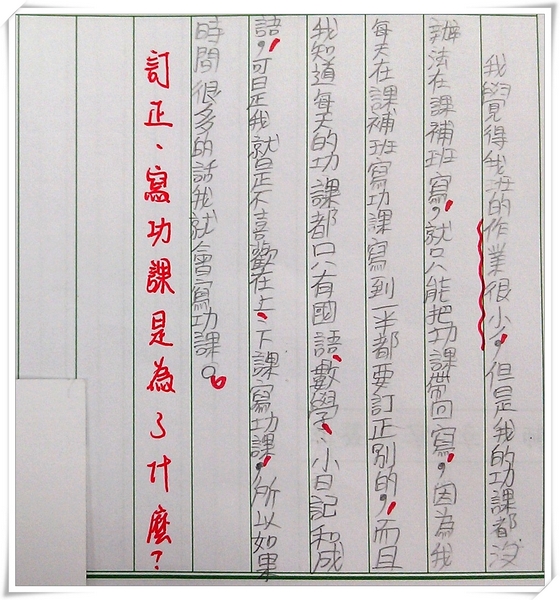 我覺得我班的作業很小，但是我的功課都沒
辦法在課補班寫，就只能把功課帶回寫，因為我
每天在課補班寫功課寫到一半都要訂正別的，而且
我知道每天的功課都只有國語、數學、小日記和成
語，可是我就是不喜歡在上、下課寫功課，所以如果
時間很多的話我就會寫功課。
訂正、寫功課是為了什麼？